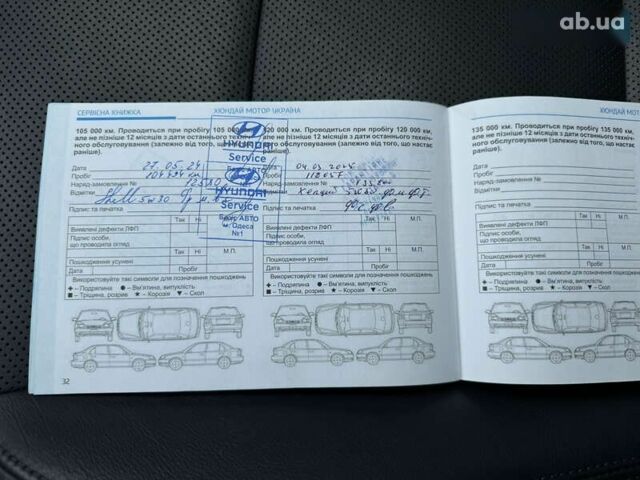 ab.ua
СЕРВІСНА КНИЖКА
ХЮНДАЙ МОТОР УКРАЇНА
105 000 км. Проводиться при пробігу 105 000 км,
але не пізніше 12 місяців з дати останнього техніч-
ного обслуговування (залежно від того, що
раніше).
Дата 27.05.24
Пробіг
Наряд-замовлення №
Відмітки Shell 5w30
Підпис та печатка
Так Ні М.П.
Виявлені дефекти ЛФП
Підпис особи,
що проводила огляд
Пошкодження усунені
Дата Пробіг
Використовуйте такі символи для позначення пошкоджень
+ – Подряпина ● – Вм'ятина, випуклість
■ – Тріщина, розрив ★ – Корозія ▼ – Скол
32
HYUNDAI
Service
HYUNDAI
Service
АВТО
м. Одеса
№1
120 000 км. Проводиться при пробігу 120 000 км,
але не пізніше 12 місяців з дати останнього техніч-
ного обслуговування (залежно від того, що настає
раніше).
Дата
Пробіг
Наряд-замовлення №
Відмітки
Підпис та печатка
Так Ні М.П.
Виявлені дефекти ЛФП
Підпис особи,
що проводила огляд
Пошкодження усунені
Дата Пробіг
Використовуйте такі символи для позначення пошкоджень
+ – Подряпина ● – Вм'ятина, випуклість
■ – Тріщина, розрив ★ – Корозія ▼ – Скол
ХЮНДАЙ МОТ
135 000 км. Проводиться при пробігу 135 000 км,
але не пізніше 12 місяців з дати останнього техніч-
ного обслуговування (залежно від того, що настає
раніше).
Дата
Пробіг
Наряд-замовлення №
Відмітки
Підпис та печатка
Так Ні М.П.
Виявлені дефекти ЛФП
Підпис особи,
що проводила огляд
Пошкодження усунені
Дата Пробіг
Використовуйте такі символи для позначення пошкоджень
+ – Подряпина ● – Вм'ятина, випуклість
■ – Тріщина, розрив ★ – Корозія ▼ – Скол